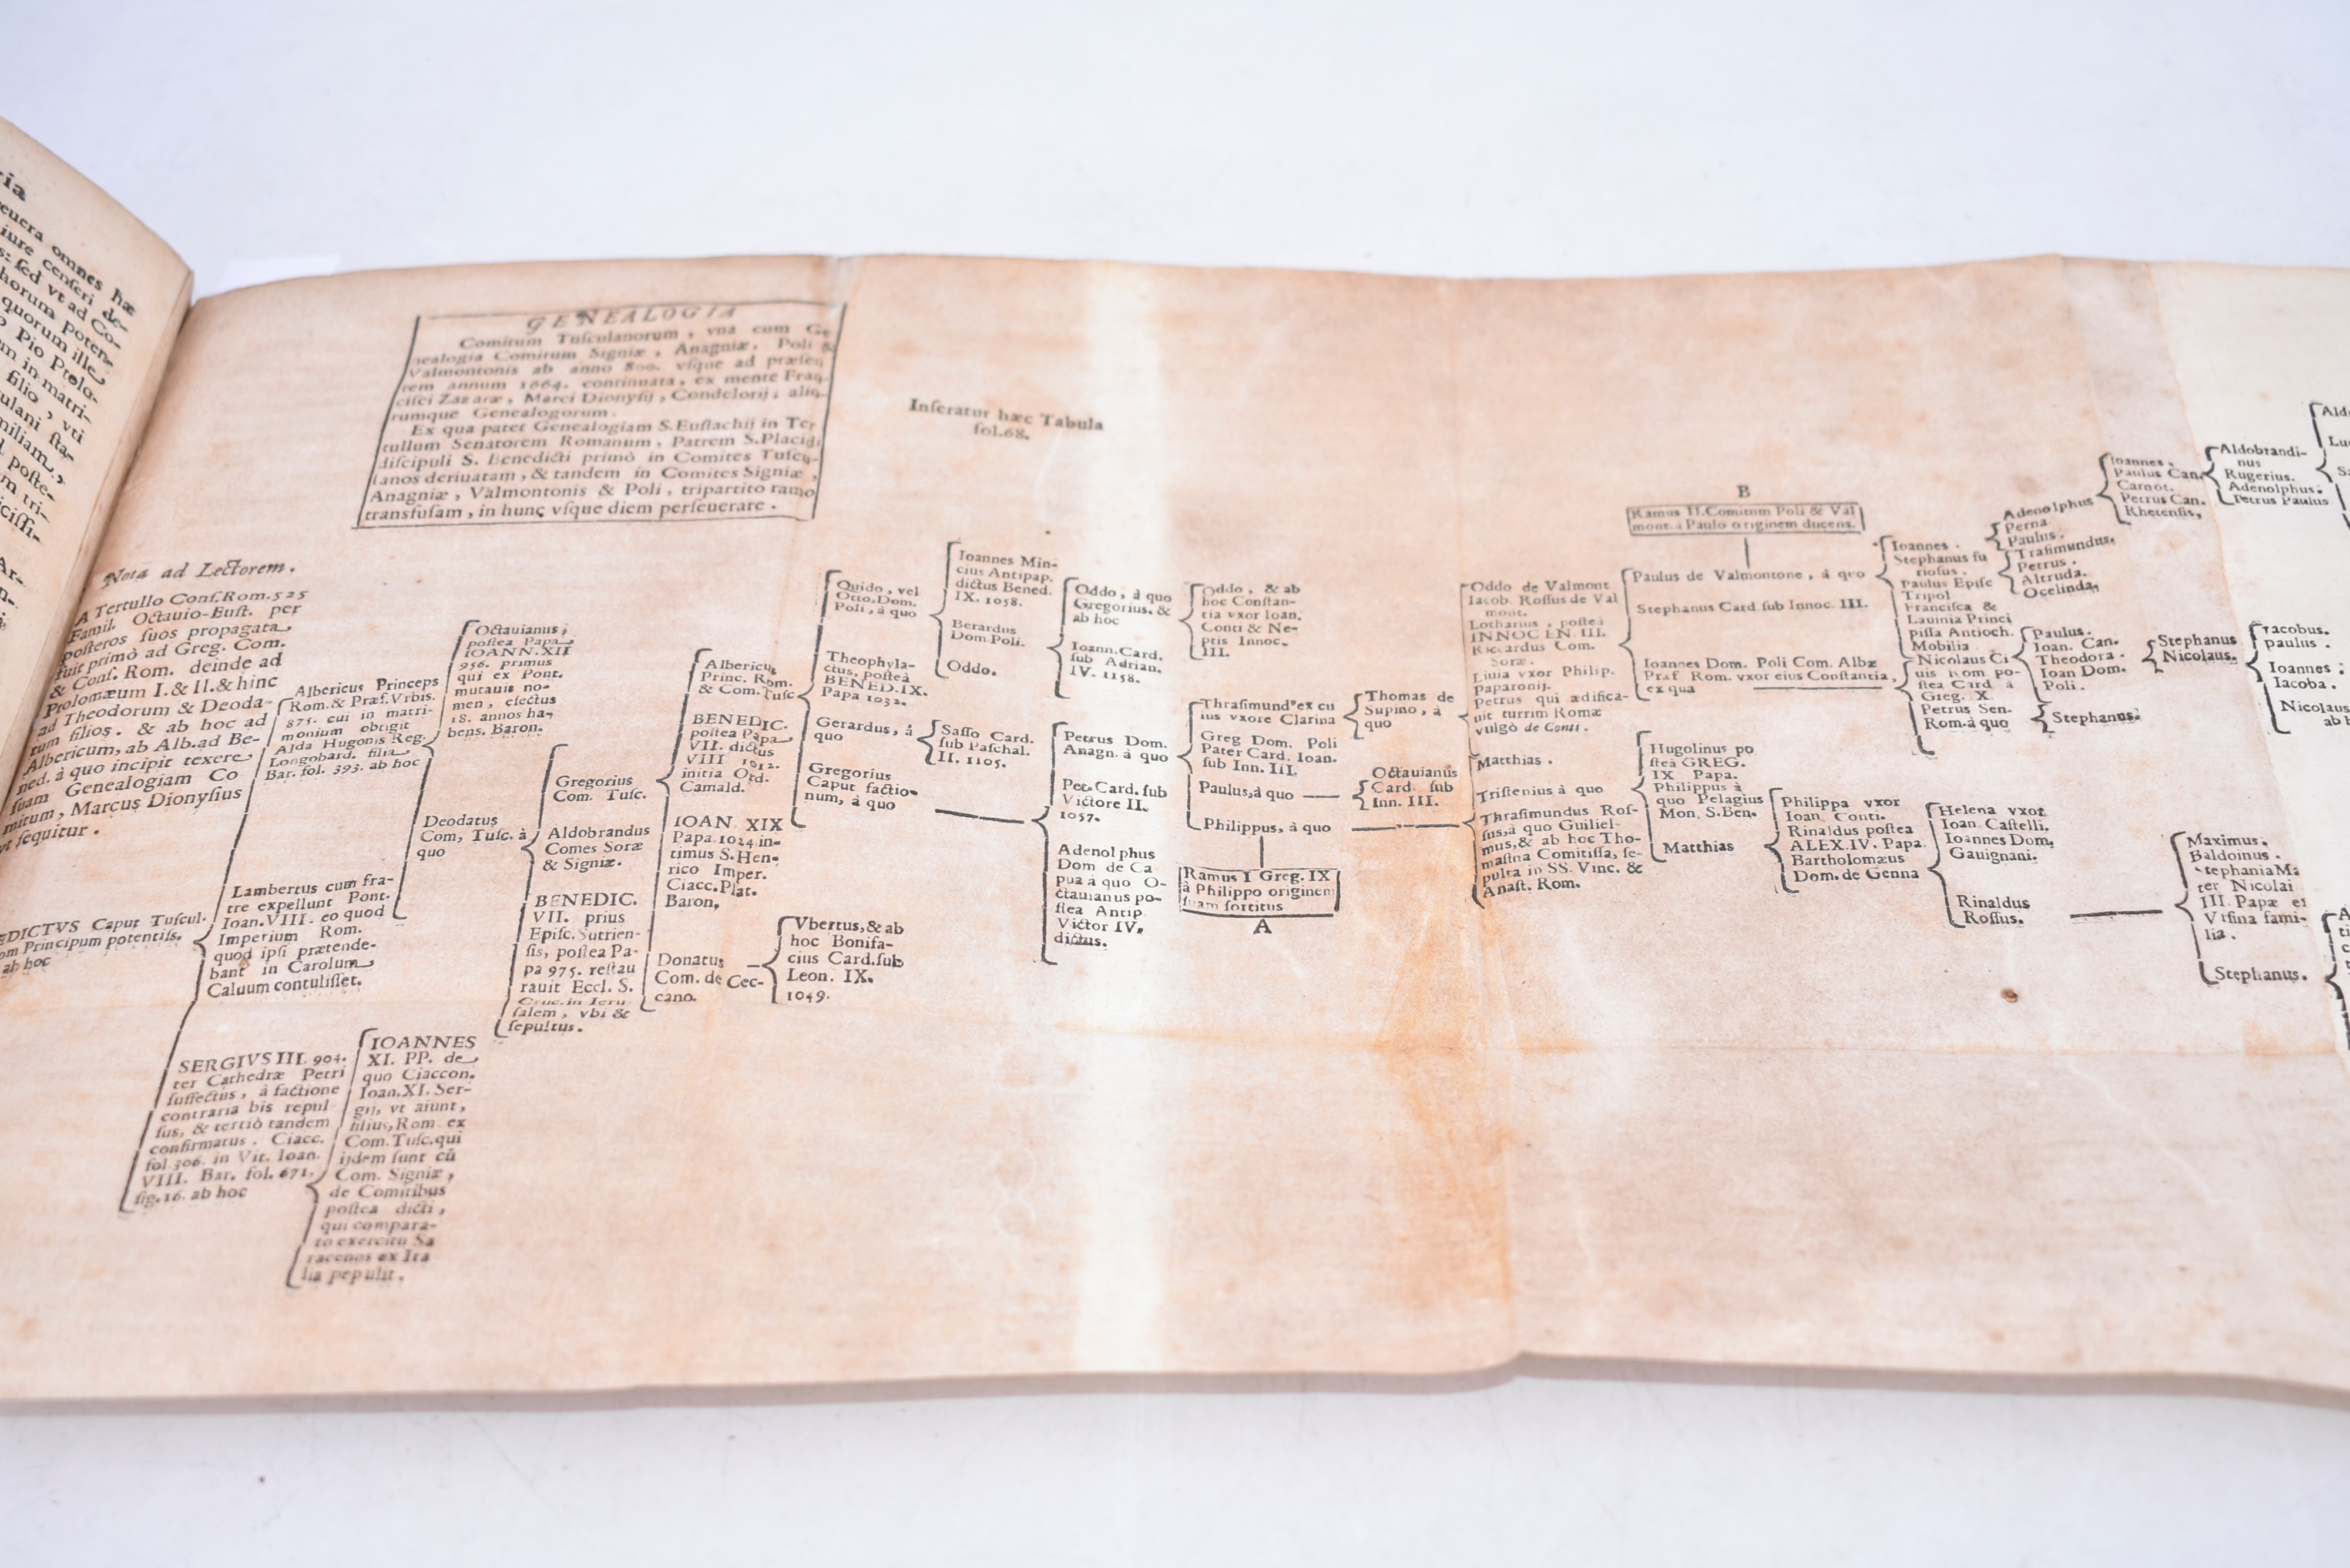 GENEALOGIA
Comitum Tuſculanorum, vna cum Ge-
nealogia Comitum Signiæ, Anagniæ, Poli &
Valmontonis ab anno 800. vſque ad præſen
tem annum 1664. continuata, ex mente Fran
ciſci Zazaræ, Marci Dionyſij, Condelorij, alio-
rumque Genealogorum.
Ex qua patet Genealogiam S. Euſtachij in Ter
tullum Senatorem Romanum, Patrem S. Placidi
diſcipuli S. Benedicti primò in Comites Tuſcu-
lanos deriuatam, & tandem in Comites Signiæ,
Anagniæ, Valmontonis & Poli, tripartito ramo
transfuſam, in hunc vſque diem perſeuerare.
Inſeratur hæc Tabula
fol. 68.
Nota ad Lectorem.
A Tertullo Conſ. Rom. 525
Famil. Octauio-Euſt. per
poſteros ſuos propagata
fuit primò ad Greg. Com.
& Conſ. Rom. deinde ad
Ptolomæum I. & II. & hinc
ad Theodorum & Deoda-
tum filios. & ab hoc ad
Albericum, ab Alb. ad Be-
ned. à quo incipit texere
ſuam Genealogiam Co
mitum, Marcus Dionyſius
vt ſequitur.
EDICTVS Caput Tuſcul.
om Principum potentiſs.
ab hoc
Albericus Princeps
Rom. & Præf. Vrbis.
875. cui in matri-
monium obtigit
Alda Hugonis Reg.
Longobard. filia
Bar. fol. 393. ab hoc
Lambertus cum fra-
tre expellunt Pont.
Ioan. VIII. eo quod
Imperium Rom.
quod ipſi prætende-
bant in Carolum
Caluum contuliſſet.
SERGIVS III. 904.
ter Cathedræ Petri
ſuffectus, à factione
contraria bis repul
ſus, & tertiò tandem
confirmatus. Ciacc.
fol. 306. in Vit. Ioan.
VIII. Bar. fol. 671.
fig. 16. ab hoc
IOANNES
XI. PP. de
quo Ciaccon.
Ioan. XI. Ser-
gij, vt aiunt,
filius, Rom. ex
Com. Tuſc. qui
ijdem ſunt cũ
Com. Signiæ,
de Comitibus
poſtea dicti,
qui compara-
to exercitu Sa
racenos ex Ita
lia pepulit.
Octauianus,
poſtea Papa
IOANN. XII
956. primus
qui ex Pont.
mutauit no-
men, electus
18. annos ha-
bens. Baron.
Deodatus
Com, Tuſc. à
quo
Gregorius
Com. Tuſc.
Aldobrandus
Comes Soræ
& Signiæ.
BENEDIC.
VII. prius
Epiſc. Sutrien-
ſis, poſtea Pa-
pa 975. reſtau
rauit Eccl. S.
Cruc. in Ieru
ſalem, vbi &
ſepultus.
Albericus
Princ. Rom.
& Com. Tuſc
BENEDIC.
poſtea Papa
VII. dictus
VIII 1012.
initia Ord.
Camald.
IOAN XIX
Papa 1024 in-
timus S. Hen-
rico Imper.
Ciacc. Plat.
Baron,
Donatus
Com. de Cec-
cano.
Vbertus, & ab
hoc Bonifa-
cius Card. ſub
Leon. IX.
1049.
Quido, vel
Otto, Dom.
Poli, à quo
Theophyla-
ctus, poſteà
BENED. IX.
Papa 1032.
Gerardus, à
quo
Gregorius
Caput factio-
num, à quo
Ioannes Min-
cius Antipap.
dictus Bened.
IX. 1058.
Berardus
Dom Poli.
Oddo.
Saſſo Card.
ſub Paſchal.
II. 1105.
Oddo, à quo
Gregorius. &
ab hoc
Ioann. Card.
ſub Adrian.
IV. 1158.
Petrus Dom.
Anagn. à quo
Pet. Card. ſub
Victore II.
1057.
Adenolphus
Dom de Ca
pua à quo O-
ctauianus po-
ſtea Antip
Victor IV.
dictus.
Oddo, & ab
hoc Conſtan-
tia vxor Ioan.
Conti & Ne-
ptis Innoc.
III.
Thraſimund' ex cu
ius vxore Clarina
Greg Dom. Poli
Pater Card. Ioan.
ſub Inn. III.
Paulus, à quo
Philippus, à quo
Ramus I Greg. IX
à Philippo originem
ſuam ſortitus
A
Thomas de
Supino, à
quo
Octauianus
Card. ſub
Inn. III.
Oddo de Valmont
Iacob. Roſſus de Val
mont.
Lotharius, poſteà
INNOCEN. III.
Riccardus Com.
Soræ.
Liuia vxor Philip.
Paparonij.
Petrus qui ædifica-
uit turrim Romæ
vulgò de Conti.
Matthias.
Triſtenius à quo
Thraſimundus Roſ-
ſus, à quo Guiliel-
mus, & ab hoc Tho-
maſina Comitiſſa, ſe-
pulta in SS. Vinc. &
Anaſt. Rom.
B
Ramus II. Comitum Poli & Val
mont. à Paulo originem ducens.
Paulus de Valmontone, à quo
Stephanus Card ſub Innoc. III.
Ioannes Dom. Poli Com. Albæ
Præf. Rom. vxor eius Conſtantia,
ex qua
Hugolinus po
ſteà GREG.
IX Papa.
Philippus à
quo Pelagius
Mon. S. Ben.
Matthias
Philippa vxor
Ioan. Conti.
Rinaldus poſtea
ALEX. IV. Papa.
Bartholomæus
Dom. de Genna
Helena vxor
Ioan. Caſtelli.
Ioannes Dom.
Gauignani.
Rinaldus
Roſſus.
Maximus.
Baldoinus.
Stephania Ma
ter Nicolai
III. Papæ ex
Vrſina fami-
lia.
Stephanus.
Ioannes.
Stephanus fu
rioſus.
Paulus Epiſc
Tripol
Franciſca &
Lauinia Princi
piſſa Antioch.
Mobilia
Nicolaus Ci
uis Rom po-
ſtea Card à
Greg. X
Petrus Sen.
Rom. à quo
Adenolphus
Perna
Paulus.
Traſimundus.
Petrus.
Altruda.
Ocelinda,
Paulus.
Ioan. Can.
Theodora.
Ioan Dom.
Poli.
Stephanus.
Ioannes.
Paulus Can.
Carnot.
Petrus Can.
Rhetenſis,
Stephanus
Nicolaus.
Aldobrandi-
nus
Rugerius.
Adenolphus.
Petrus Paulus
Iacobus.
paulus.
Ioannes:
Iacoba.
Nicolaus
ab h